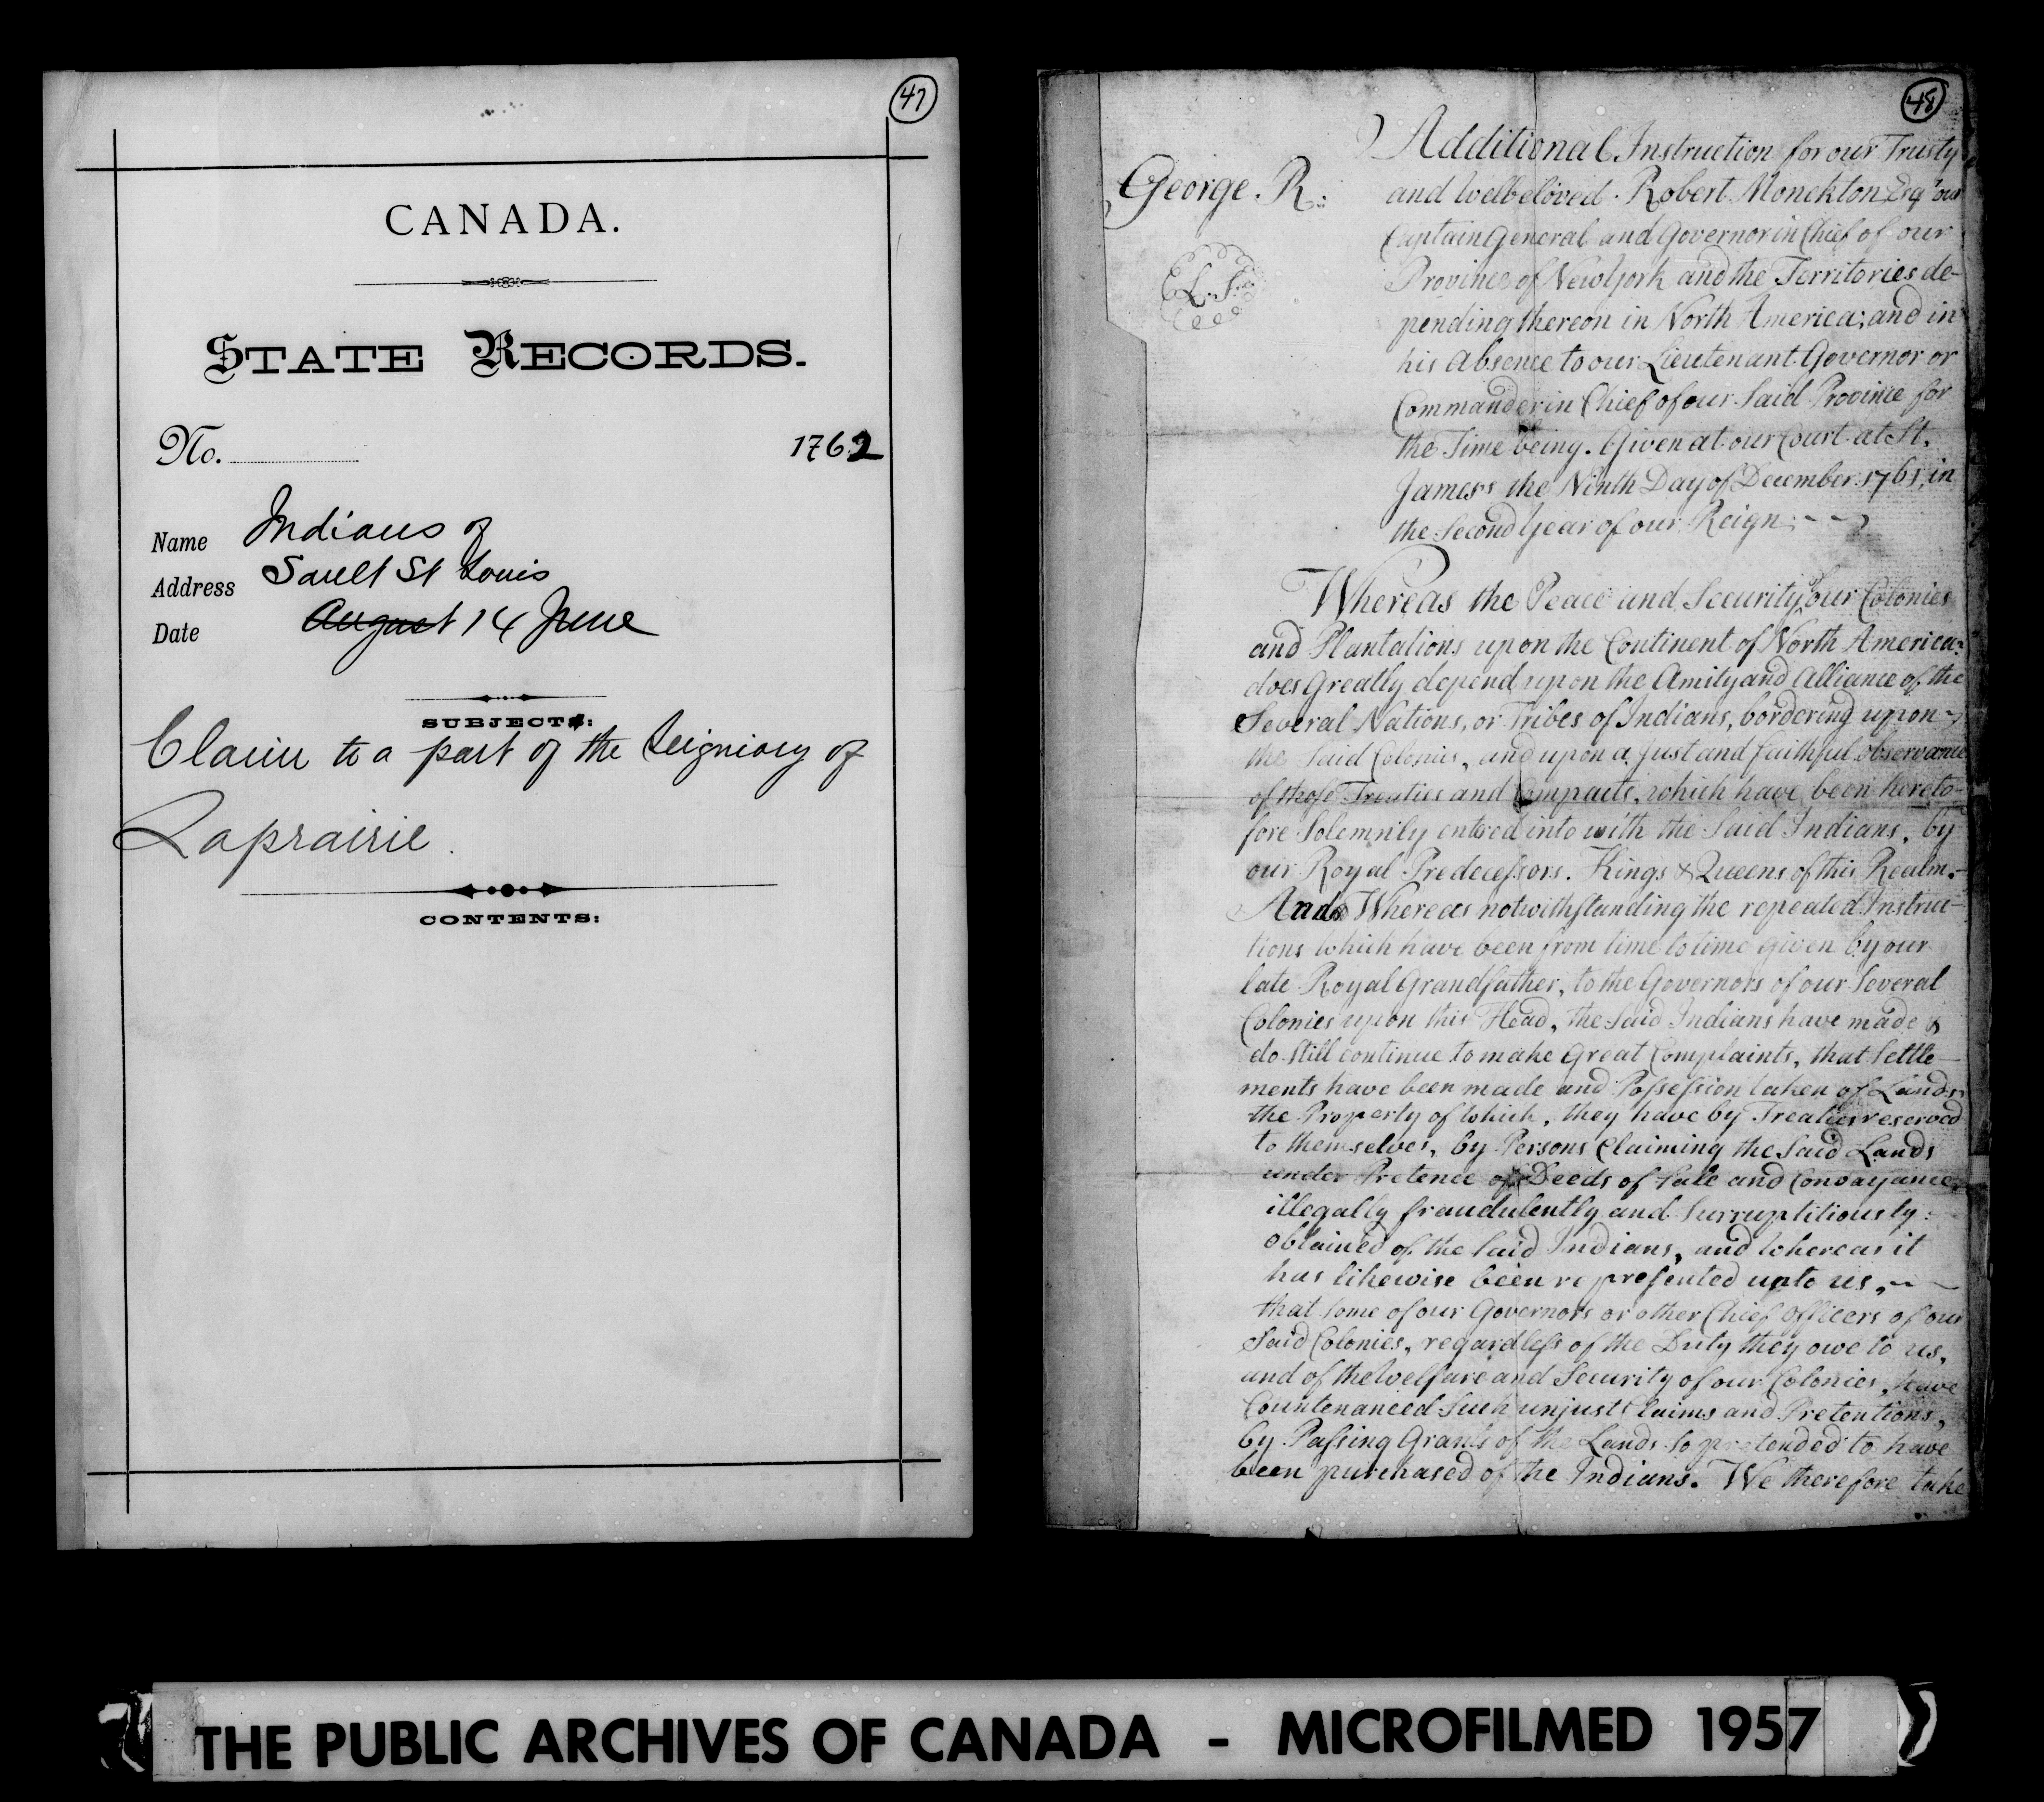 47
CANADA.
STATE RECORDS.
No.
1762
Name Indians of
Address Sault St Louis
Date August 14 June
SUBJECT:
Claim to a part of the Seigniory of
Laprairie.
CONTENTS:
48
George. R.
L. S.
Additional Instruction for our Trusty
and Welbeloved. Robert Monckton Esqr our
Captain General and Governor in Chief of our
Province of New York and the Territories de-
pending thereon in North America; and in
his Absence to our Lieutenant Governor or
Commander in Chief of our Said Province for
the Time being. Given at our Court at St.
James's the Ninth Day of December 1761, in
the Second Year of our Reign.
Whereas the Peace and Security of our Colonies
and Plantations upon the Continent of North America
does Greatly depend upon the Amity and Alliance of the
Several Nations, or Tribes of Indians, bordering upon
the Said Colonies, and upon a Just and faithful observance
of those Treaties and Compacts, which have been hereto-
fore Solemnily entred into with the Said Indians, by
our Royal Predecessors. Kings & Queens of this Realm.
And Whereas notwithstanding the repeated Instruc-
tions which have been from time to time Given by our
late Royal Grandfather, to the Governors of our Several
Colonies upon this Head, the Said Indians have made &
do Still continue to make Great Complaints, that Settle-
ments have been made and Possession taken of Lands
the Property of which, they have by Treaties reserved
to themselves, by Persons Claiming the Said Lands
under Pretence of Deeds of Sale and Convayance
illegally fraudulently and Surruptitiously
obtained of the Said Indians, and whereas it
has likewise been represented unto us,
that Some of our Governors or other Chief Officers of our
Said Colonies, regardless of the Duty they owe to us,
and of the Welfare and Security of our Colonies, have
Countenanced Such unjust Claims and Pretentions,
by Passing Grants of the Lands so pretended to have
been purchased of the Indians. We therefore take
THE PUBLIC ARCHIVES OF CANADA - MICROFILMED 1957